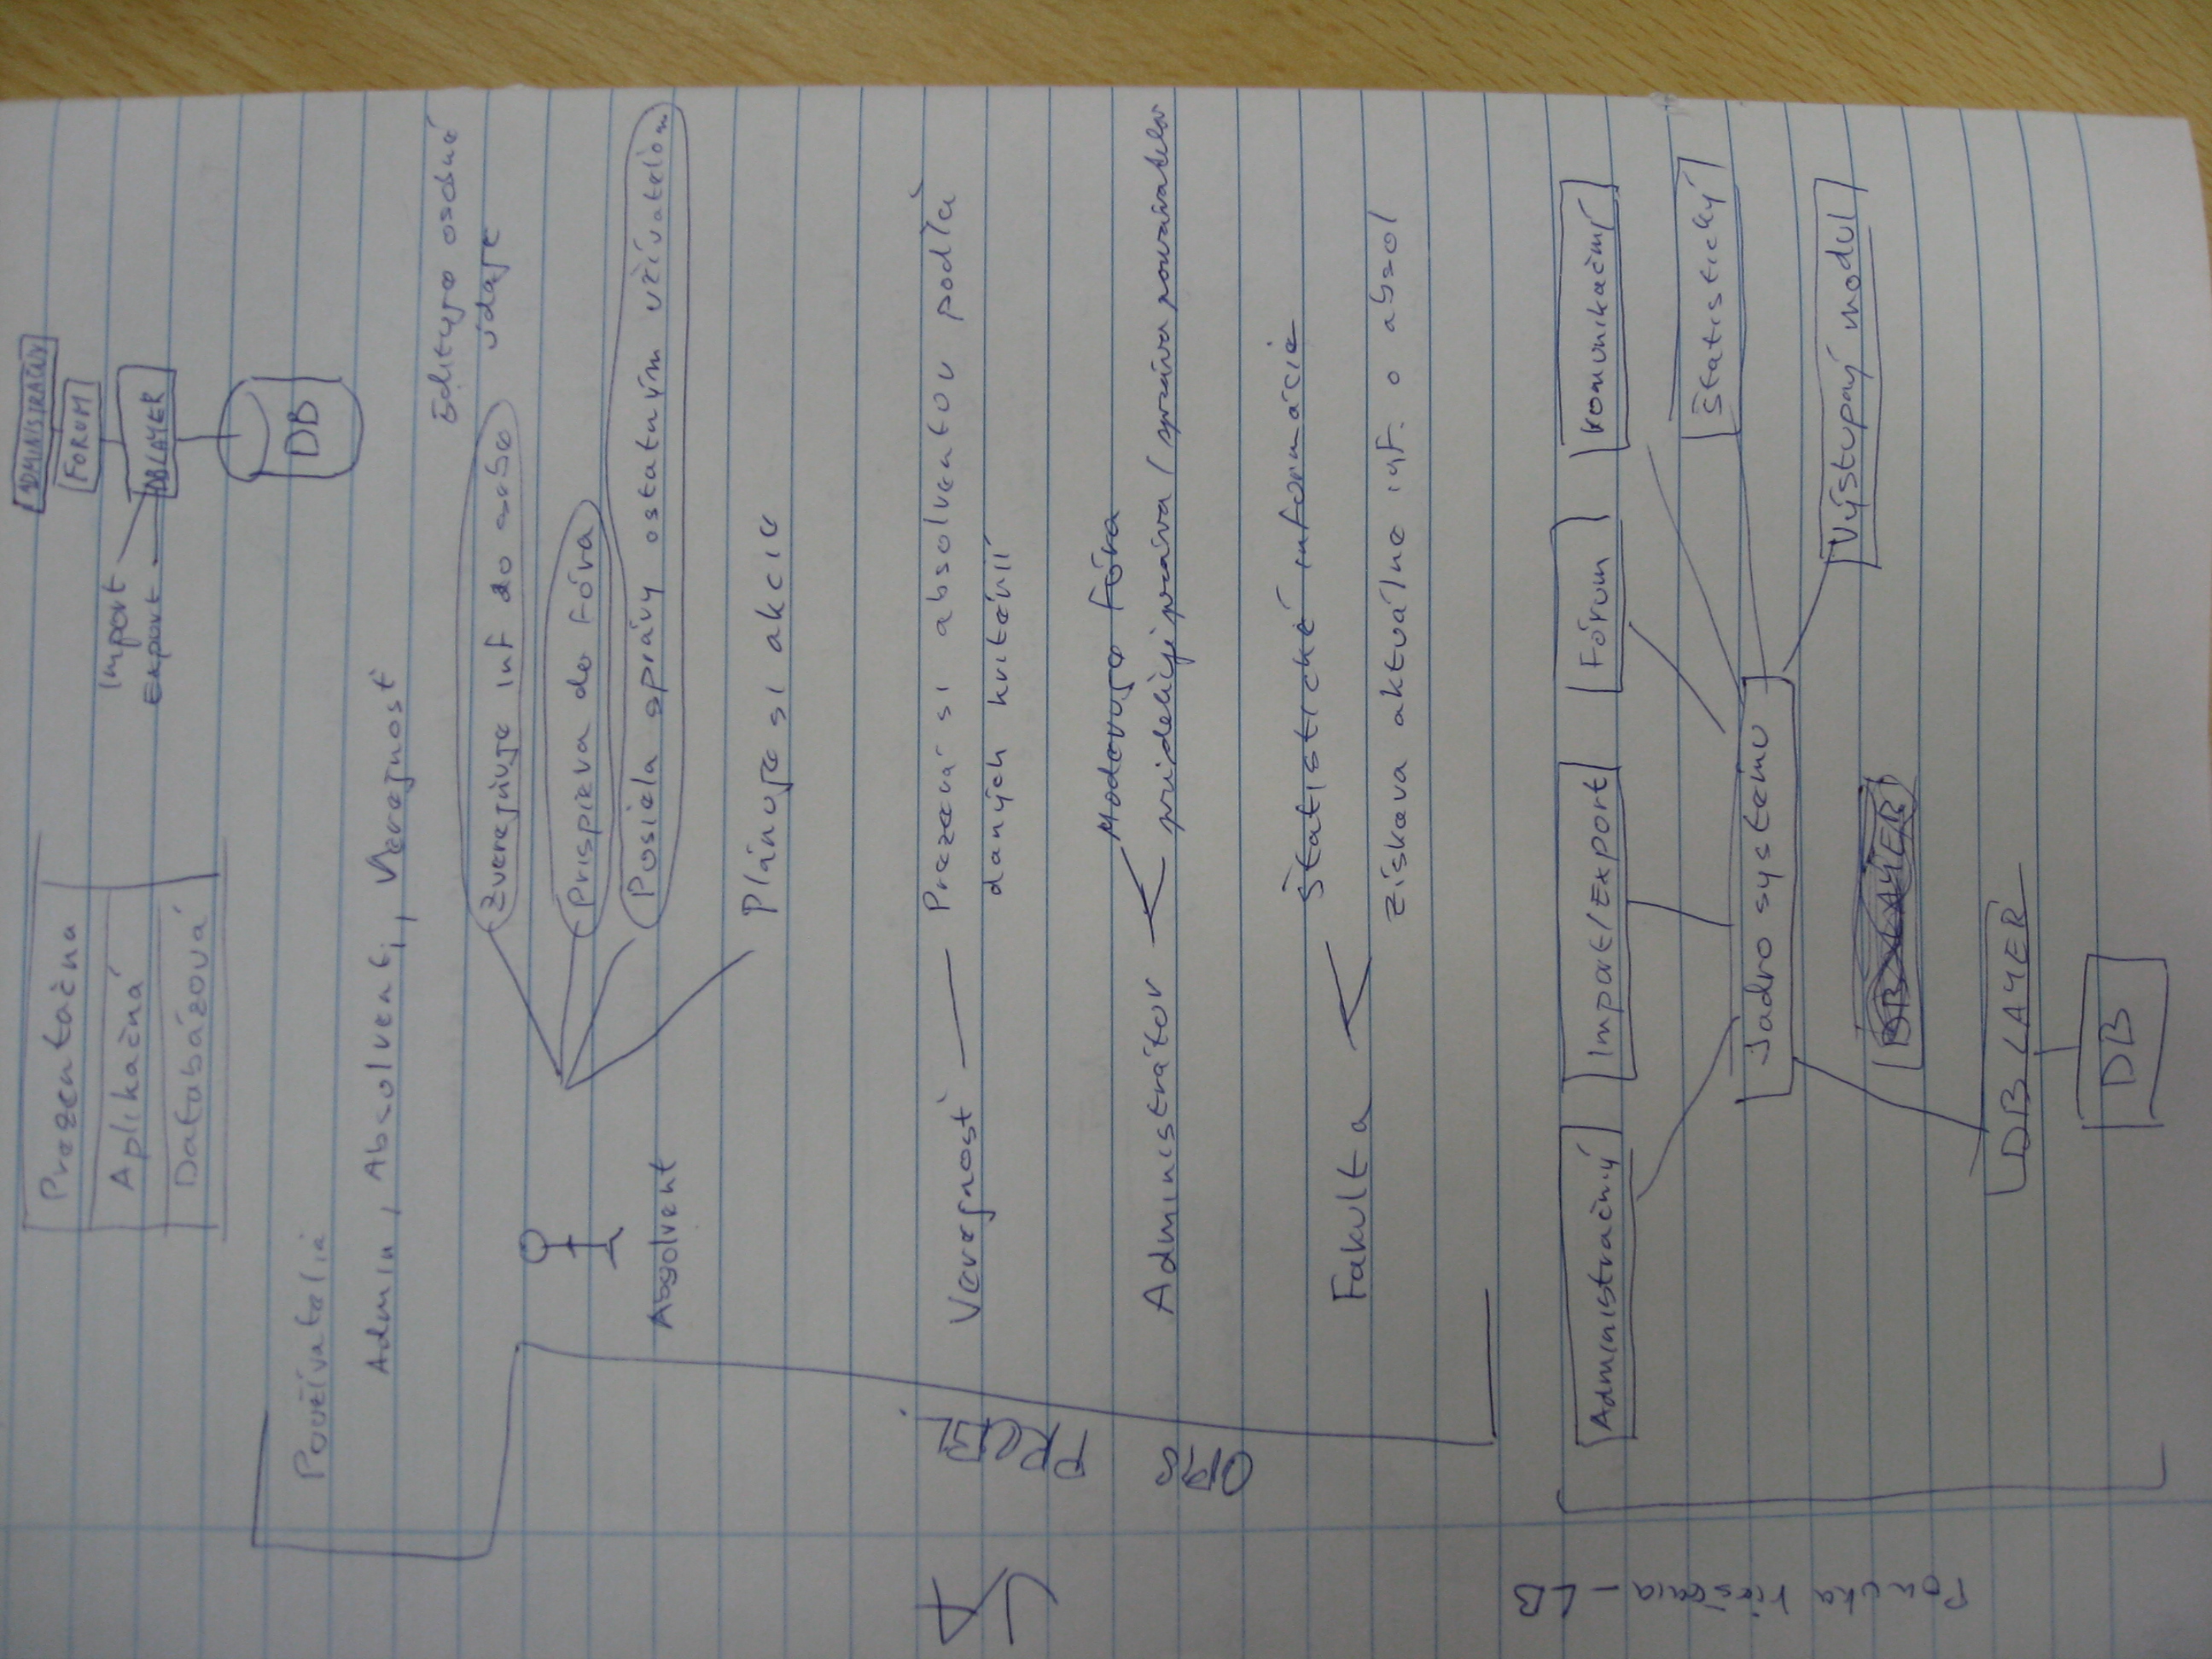 Prezentačna
Aplikačná
Databázová
ADMINISTRAČNÝ
FORUM
Import
Export
DB LAYER
DB
Používatelia
Admin, Absolventi, Verejnosť
Edituje osobné
údaje
Zverejňuje inf do seba
Prispieva do Fóra
Posiela správy ostatným užívatelom
Absolvent
Plánuje si akcie
JA
OPIS PROBL.
Verejnosť
Prezerá si absolventov podľa
daných kritérií
Administrátor
Moderuje Fóra
prideľuje práva / správa používateľov
Fakulta
Štatistické informácie
Získava aktuálne inf. o absol
Ponuka riešenia - LB
Administračný
Import/Export
Fórum
Komunikační
Štatistický
Jadro systemu
Výstupný modul
DB LAYER
DB LAYER
DB